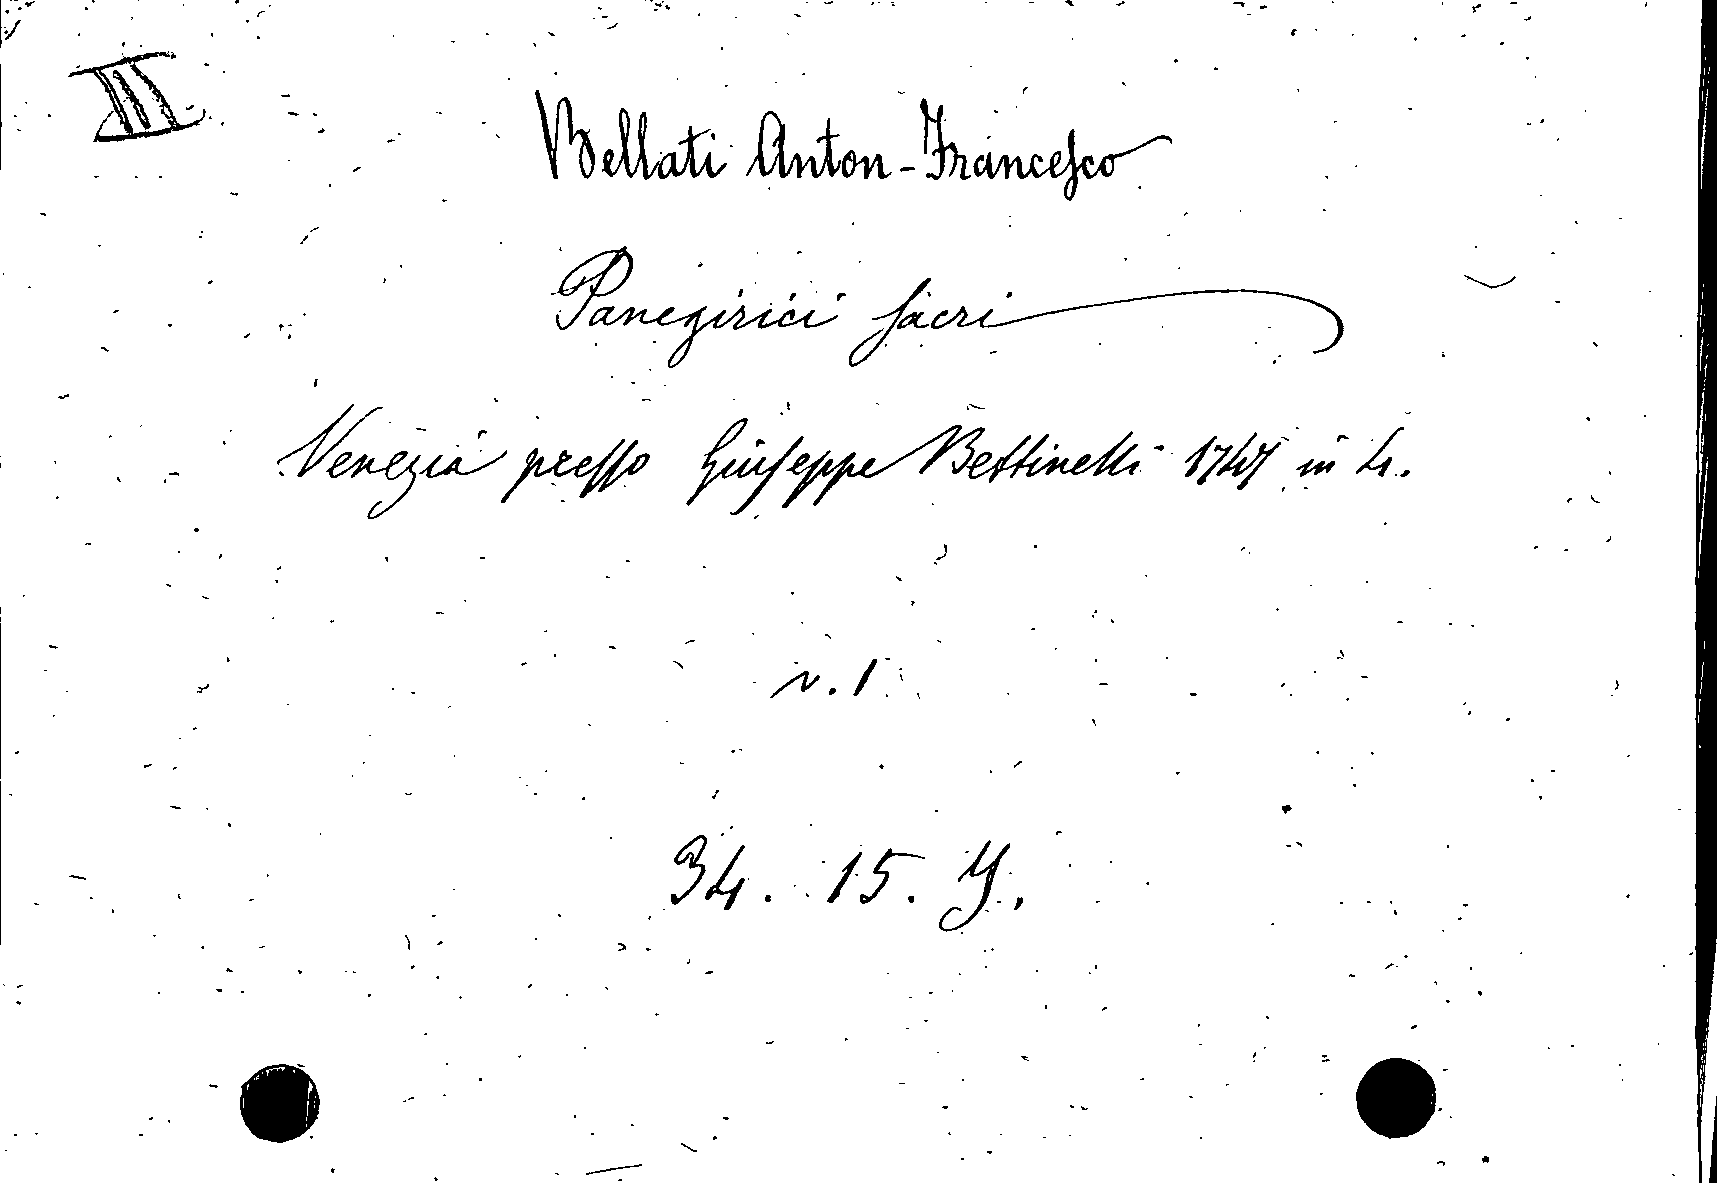 III
Bellati Anton-Francesco
Panegirici sacri
Venezia presso Giuseppe Bettinelli in 4.
v. 1
34. 15. Y.